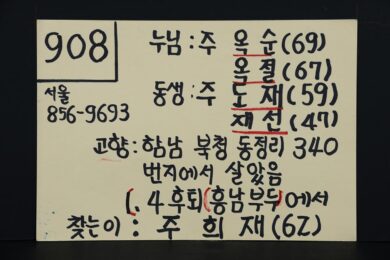 908
누님 : 주 옥순(69)
옥절(67)
서울
856-9693
동생 : 주 도재(59)
재선(47)
고향 : 함남 북청 동정리 340
번지에서 살았음
(1.4 후퇴(흥남부두)에서
찾는이 : 주희재(62)